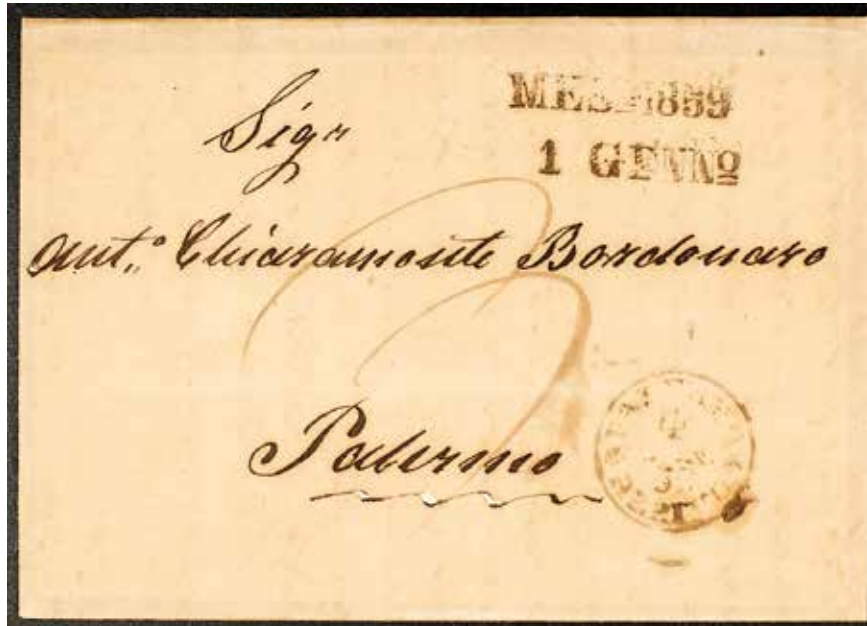 MESS 1859
1 GENNO
Sigr
Ant.º Chiaramonte Bordonaro
Palermo